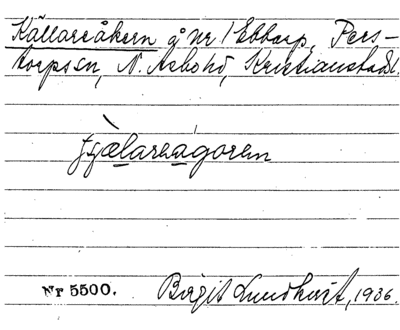 Källareåkern å nr 1 Ebbarp, Pers-
torps sn, N. Åsbo hd, Kristianstads l.
Nr 5500.
Birgit Lundkvist, 1936.